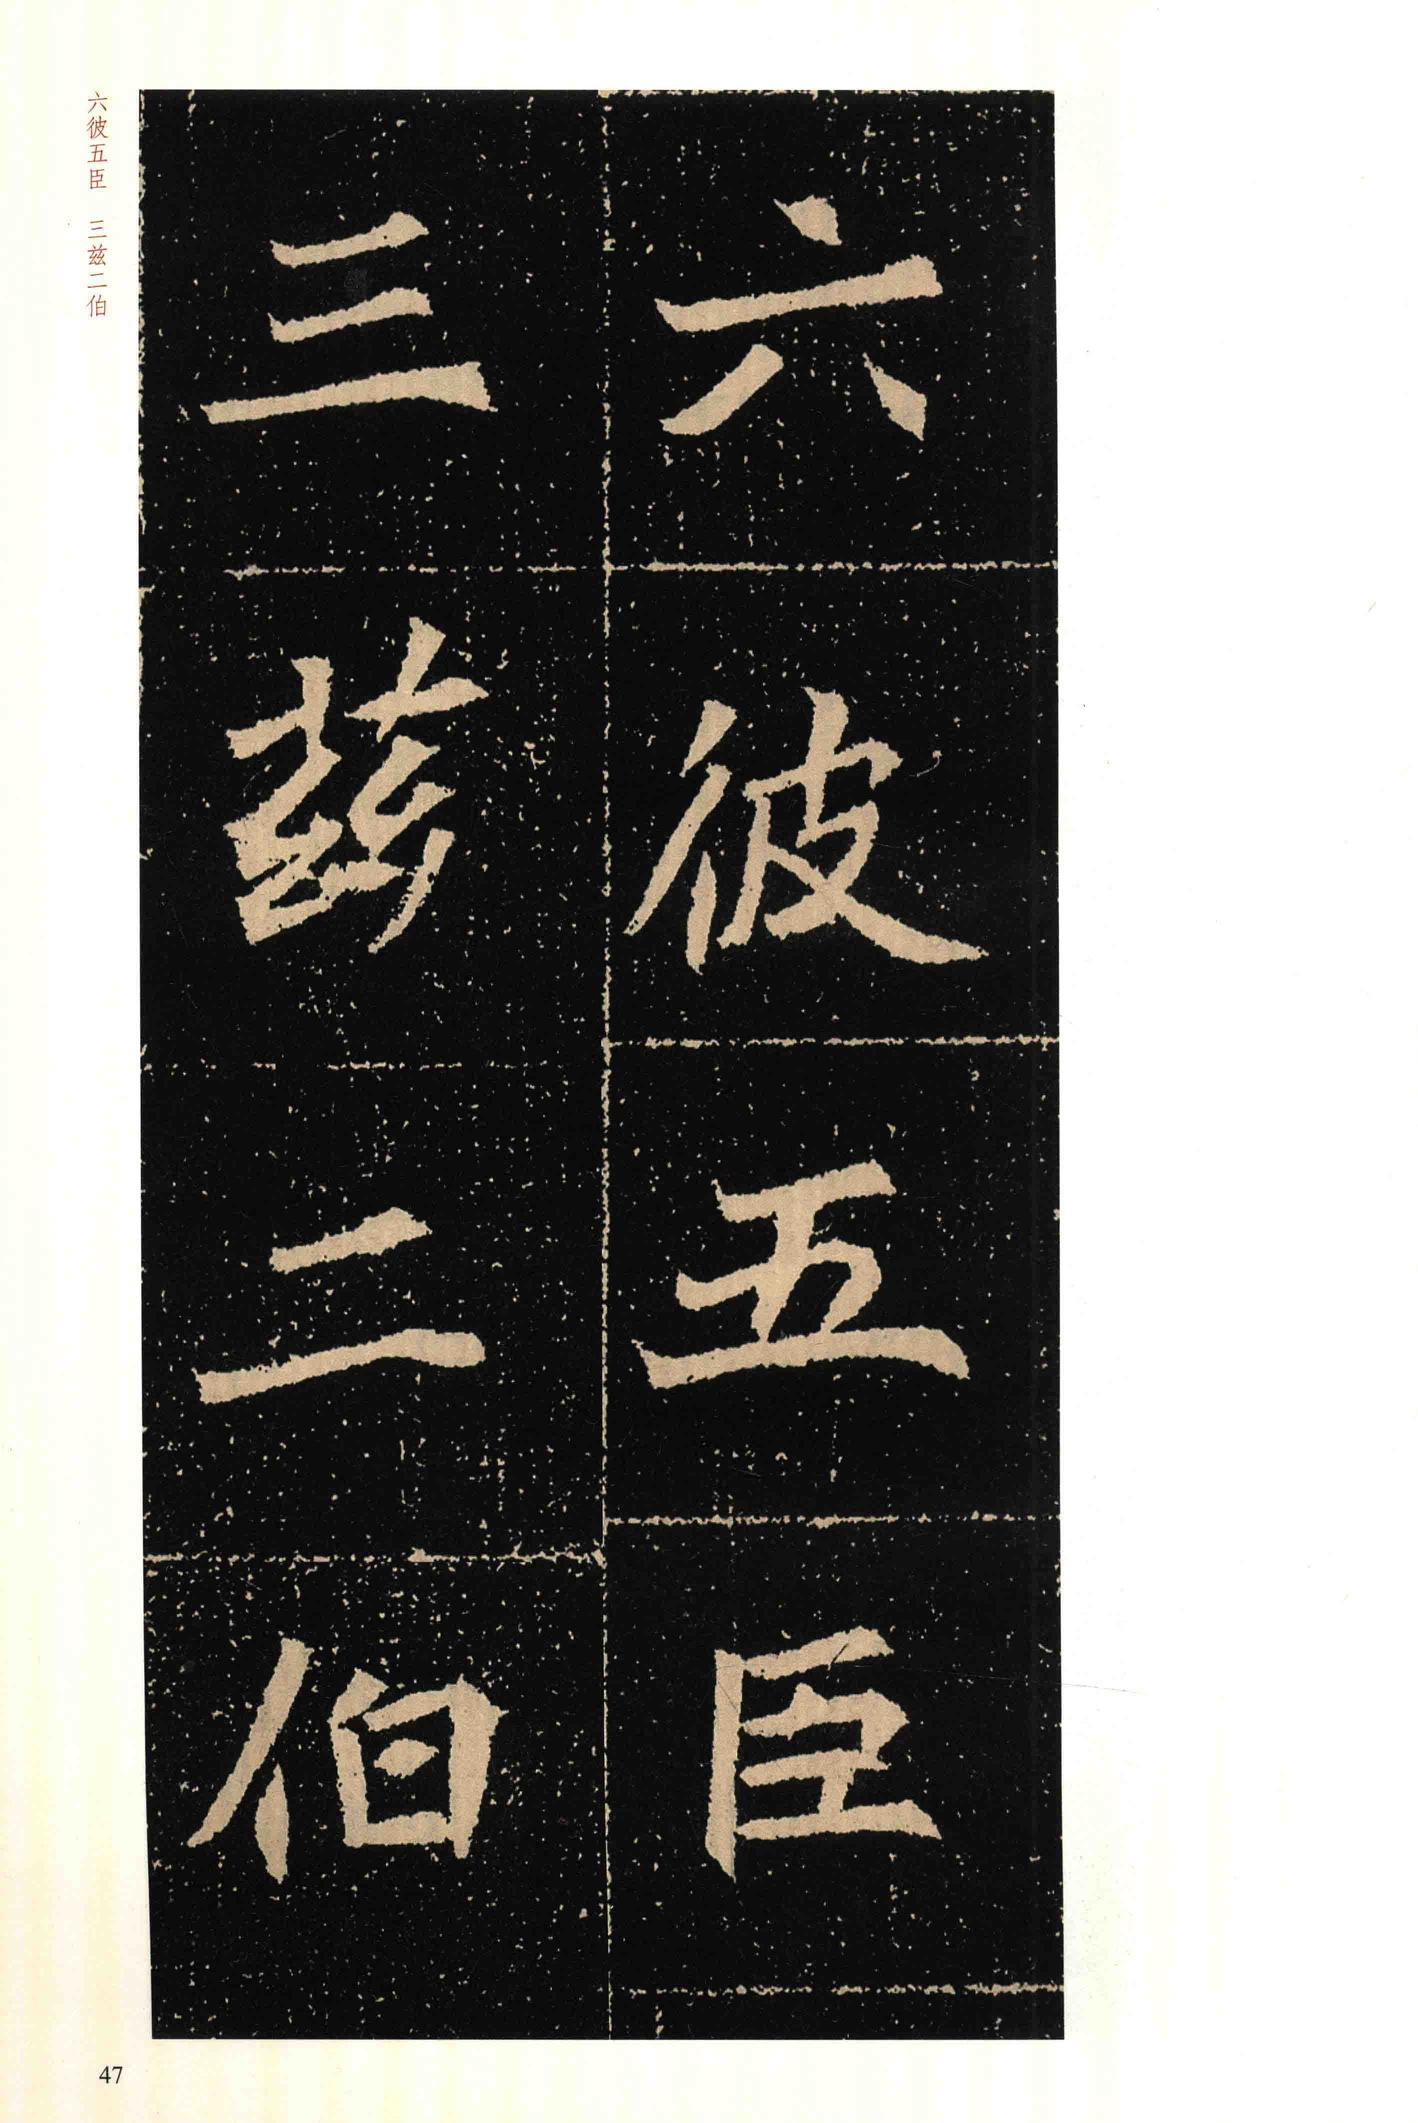 六彼五臣
三兹二伯
六彼五臣 三兹二伯
47